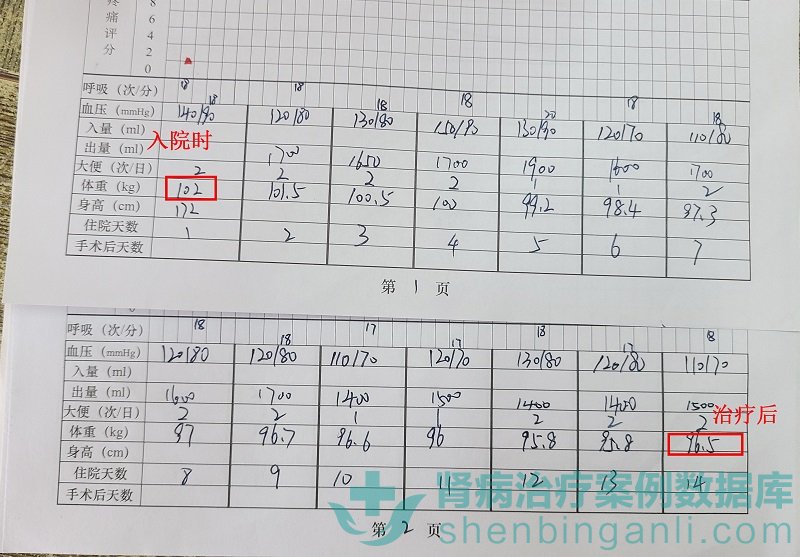 疼痛评分
8
6
4
2
0
呼吸（次/分） 18 18 18 18 18 20 18 18
血压（mmHg） 140/90 120/80 130/80 150/90 130/90 120/70 110/80
入量（ml）
入院时
出量（ml） 1700 1650 1700 1900 1600 1700
大便（次/日） 2 2 2 2 1 1 2
体重（kg） 102 101.5 100.5 100 99.2 98.4 97.3
身高（cm） 172
住院天数 1 2 3 4 5 6 7
手术后天数
第 1 页
呼吸（次/分） 18 18 17 17 18 17 18
血压（mmHg） 120/80 120/80 110/70 120/70 130/80 120/80 110/70
入量（ml）
出量（ml） 1600 1700 1400 1500 1400 1400 1500
治疗后
大便（次/日） 2 2 1 1 2 2 2
体重（kg） 97 96.7 96.6 96 95.8 95.8 96.5
身高（cm）
住院天数 8 9 10 11 12 13 14
手术后天数
第 2 页
肾病治疗案例数据库
shenbinganli.com